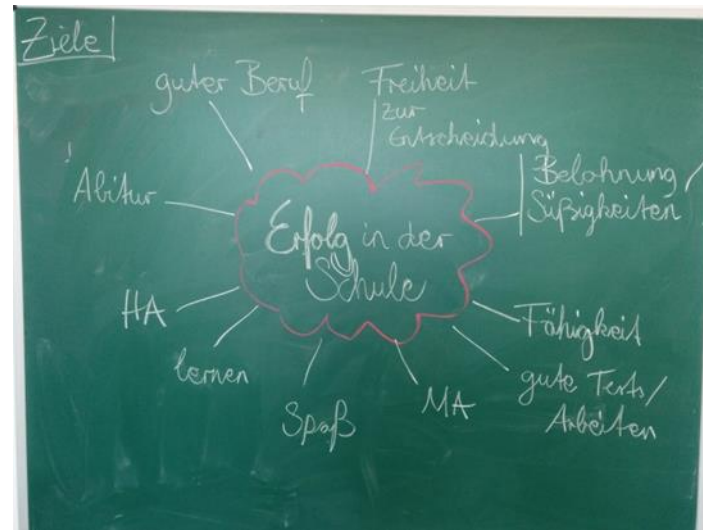 Ziele
guter Beruf
Freiheit
zur
Entscheidung
Belohnung/
Süßigkeiten
Abitur
Erfolg in der
Schule
HA
lernen
Spaß
MA
Fähigkeit
gute Tests/
Arbeiten